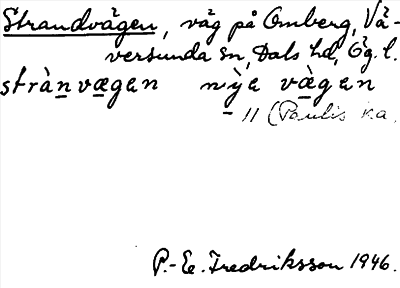 Strandvägen, väg på Omberg, Vä-
versunda sn, Dals hd, Ög. l.
strànvægen nỳe vægen
- 11 (Paulis
P.-E. Fredriksson 1946.